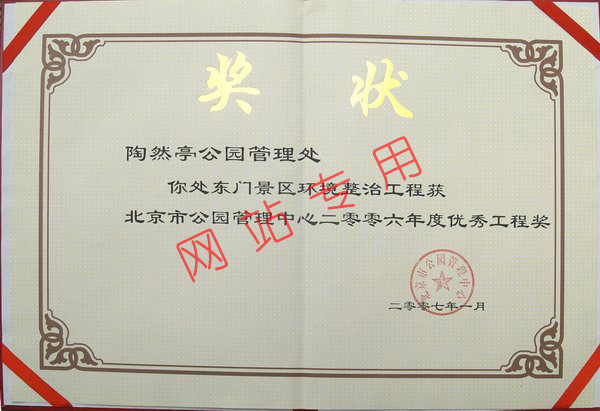 奖状
陶然亭公园管理处
你处东门景区环境整治工程获
北京市公园管理中心二零零六年度优秀工程奖
北京市公园管理中心
二零零七年一月
网站专用